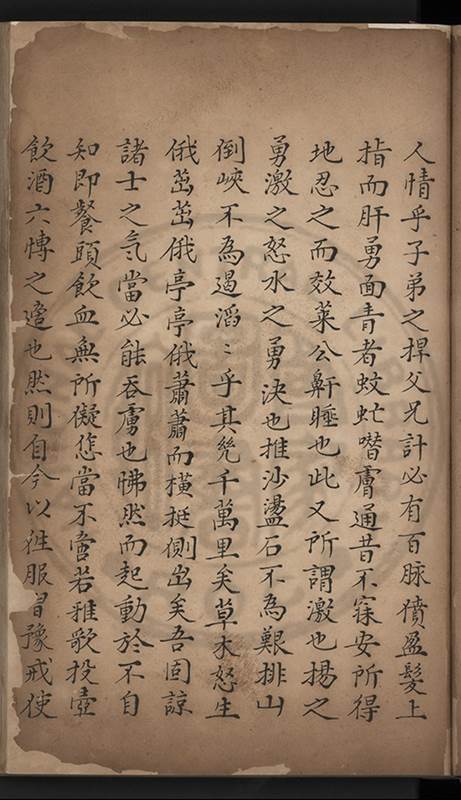 人情乎子弟之捍父兄計必有百脉僨盈髮上
指而肝勇面青者蚊虻噆膚通昔不寐安所得
地忍之而效萊公鼾睡也此又所謂激也揚之
勇激之怒水之勇決也推沙盪石不為艱排山
倒峽不為遏滔〻乎其幾千萬里矣草木怒生
俄茁茁俄亭亭俄蕭蕭而橫挺側出矣吾固諒
諸士之氣當必能吞虜也怫然而起動於不自
知即餐頭飲血無所礙恁當不啻若雅歌投壺
飲酒六博之適也然則自今以徃服習豫戒使